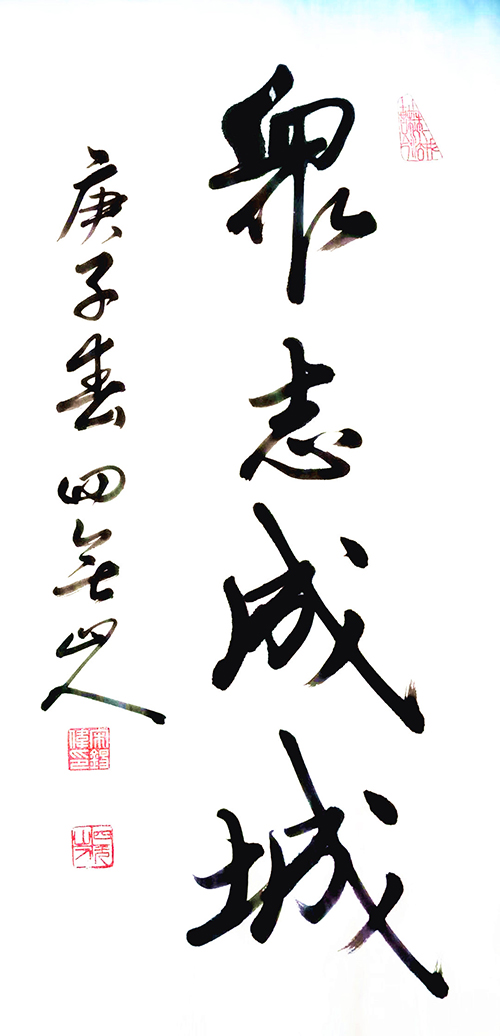 衆志成城
庚子春四無山人